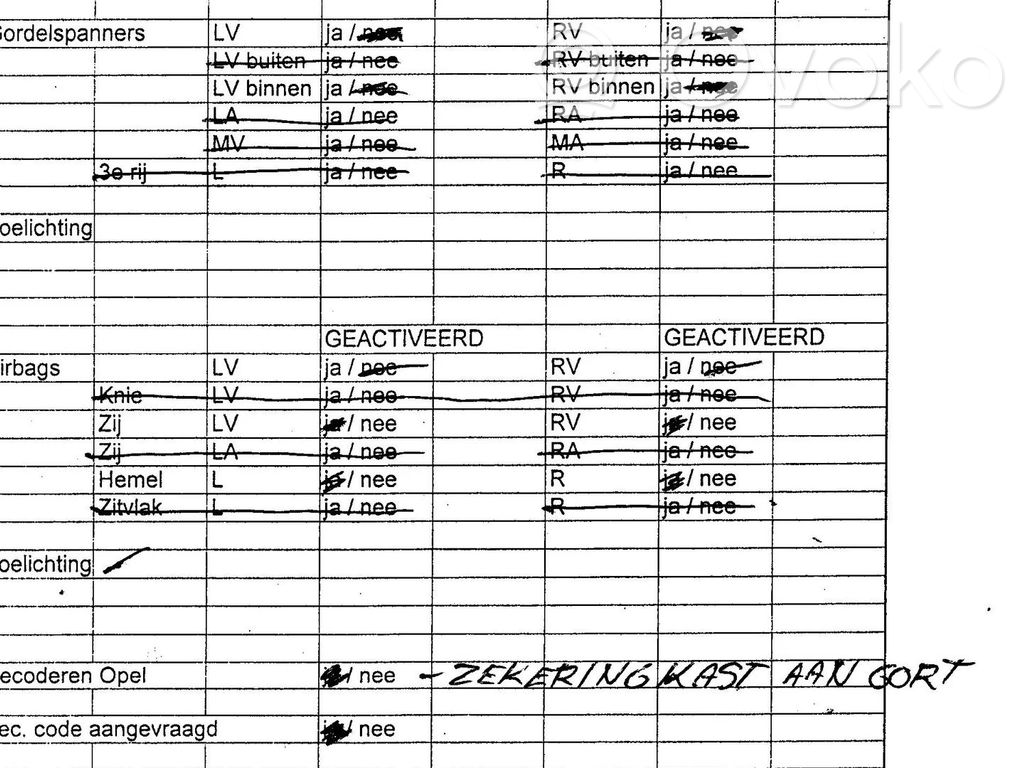 ordelspanners LV ja / nee RV ja / nee
LV buiten ja / nee RV buiten ja / nee
LV binnen ja / nee RV binnen ja / nee
LA ja / nee RA ja / nee
MV ja / nee MA ja / nee
3e rij L ja / nee R ja / nee
oelichting
GEACTIVEERD GEACTIVEERD
irbags LV ja / nee RV ja / nee
Knie LV ja / nee RV ja / nee
Zij LV ja / nee RV ja / nee
Zij LA ja / nee RA ja / nee
Hemel L ja / nee R ja / nee
Zitvlak L ja / nee R ja / nee
oelichting
ecoderen Opel ja / nee - ZEKERING KAST AAN GORT
ec. code aangevraagd ja / nee
Ovoko